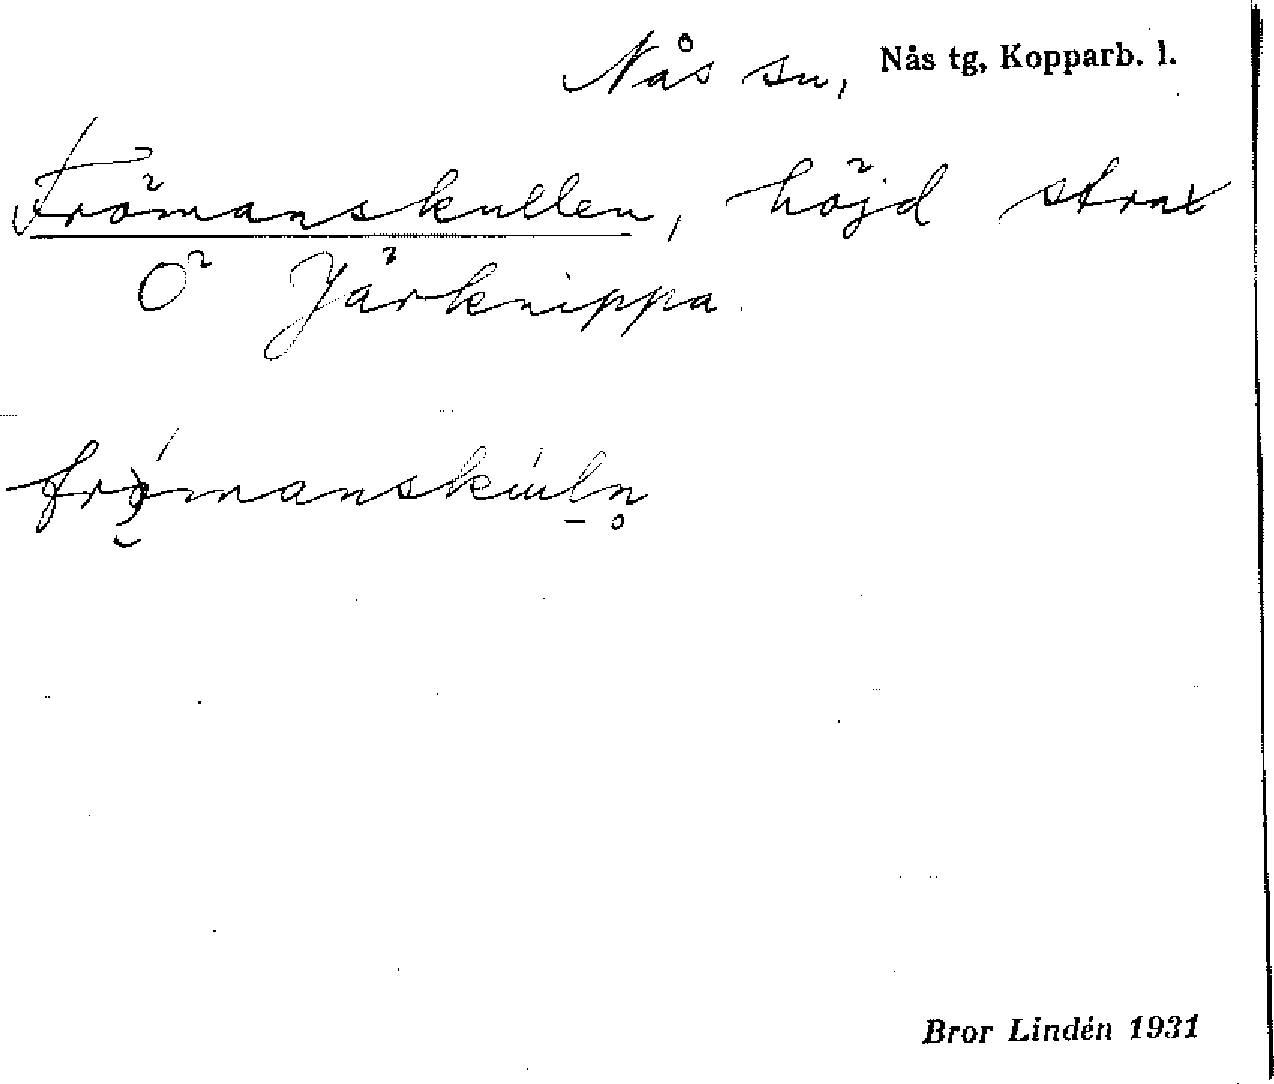 Nås sn, Nås tg, Kopparb. l.
Frömanskullen, höjd strax
Ö Järknippa.
Bror Lindén 1931